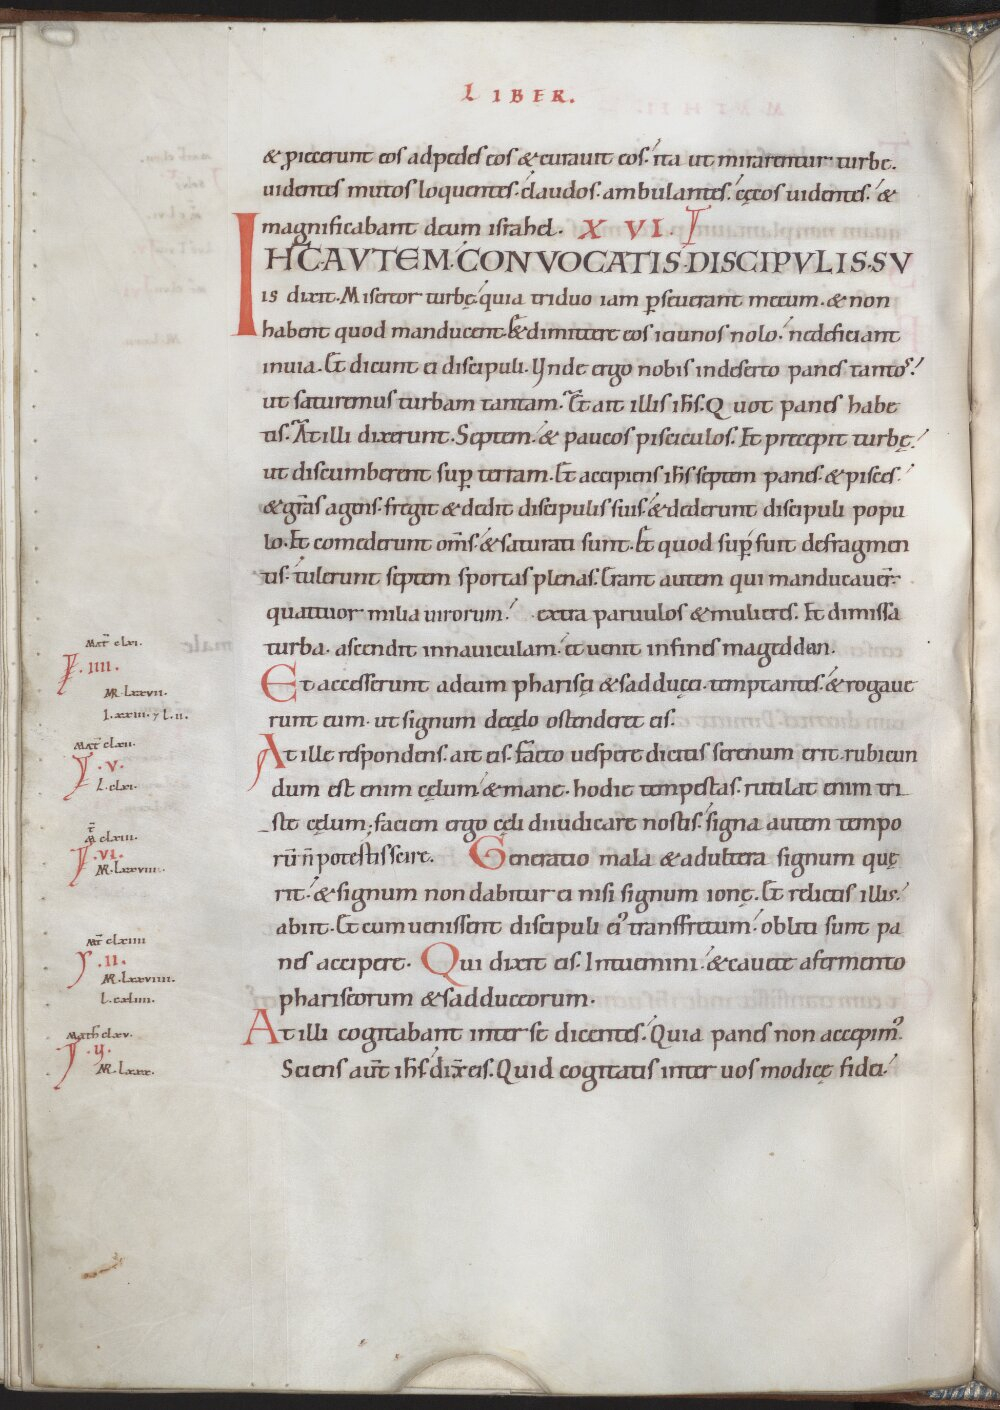 LIBER.
& proiecerunt eos ad pedes eos & curauit eos. ita ut mirarentur turbe.
uidentes mutos loquentes. claudos. ambulantes. cęcos uidentes. &
magnificabant deum israhel. XVI.
IHC. AVTEM. CONVOCATIS. DISCIPVLIS. SV
is dixit. Misereor turbę. quia triduo iam pseuerant mecum. & non
habent quod manducent. & dimittere eos ieiunos nolo. ne deficiant
in uia. Et dicunt ei discipuli. Vnde ergo nobis in deserto panes tantos.
ut saturemus turbam tantam. Et ait illis ihs. Quot panes habe
tis. At illi dixerunt. Septem. & paucos pisciculos. Et precepit turbę.
ut discumberent sup terram. Et accipiens ihs septem panes. & pisces.
& gras agens. fregit & dedit discipulis suis. & dederunt discipuli popu
lo. Et comederunt oms. & saturati sunt. Et quod supfuit de fragmen
tis. tulerunt septem sportas plenas. Erant autem qui manducauer
quattuor milia uirorum. extra paruulos & mulieres. Et dimissa
turba. ascendit in nauiculam. et uenit in fines mageddan.
Et accesserunt ad eum pharisęi & sadducęi. temptantes. & rogaue
runt eum. ut signum de cęlo ostenderet eis.
At ille respondens. ait eis. Facto uespere dicitis serenum erit. rubicun
dum est enim cęlum. & mane. hodie tempestas. rutilat enim tri
ste cęlum; faciem ergo cęli diiudicare nostis. signa autem tempo
rū n̄ potestis scire. Generatio mala & adultera signum quę
rit. & signum non dabitur ei nisi signum ionę. Et relictis illis.
abiit. Et cum uenissent discipuli ei' trans fretum. obliti sunt pa
nes accipere. Qui dixit eis. Intuemini. & cauete a fermento
phariseorum & sadduceorum.
At illi cogitabant inter se dicentes. Quia panes non accepim'.
Sciens aut ihs. dix eis. Quid cogitatis inter uos modicę fidei.
Mat clxi.
.IIII.
MR. lxxvii.
I. xxiii. 7 l. ii.
Mat clxii.
.V.
L. clxi.
clxiii.
.VI.
MR. lxxviii.
Mt clxiiii
.II.
MR. lxxviiii.
L. cxliiii.
Math clxv.
MR. lxxx.